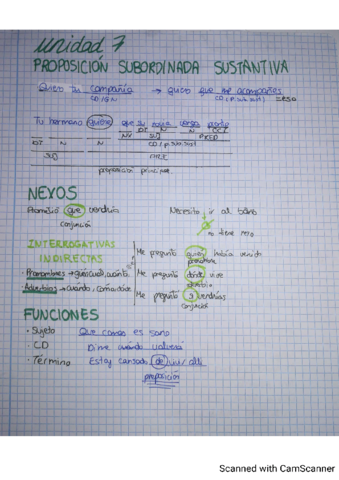 Unidad 7
PROPOSICIÓN SUBORDINADA SUSTANTIVA
Quiero tu compañía → quiero que me acompañes
CD/GN CD (P. sub. sust) = ESO
Tu hermano quiere que su novia venga pronto
DT N N CCT
NV SUJ PRED
DT N N CD / p. sub. sust
SUJ PRED
proposición principal
NEXOS
Prometió que vendría Necesito ir al baño
conjunción
no tiene nexo
INTERROGATIVAS INDIRECTAS
Me pregunto quién había venido
pronombre
Pronombres → quién, cuál, cuánto
Me pregunto dónde vive
adverbio
Adverbios → cuándo, cómo, dónde
Me pregunto si vendrías
conjunción
FUNCIONES
· Sujeto Que corras es sano
· CD Dime cuándo volverá
· Término Estoy cansado de vivir allí
preposición
Scanned with CamScanner